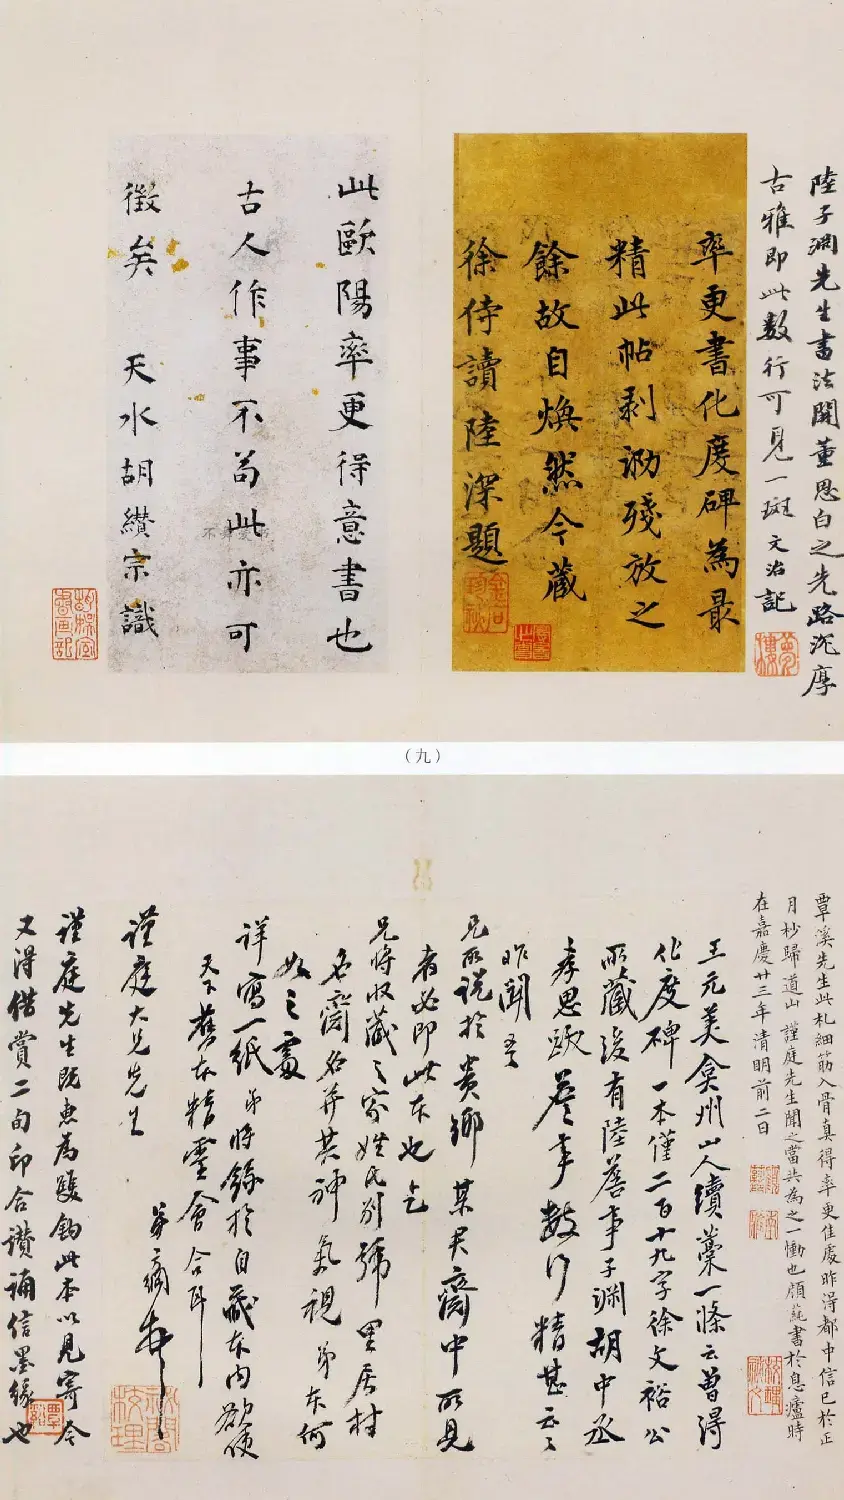 陸子淵先生書法開董思白之先路沉厚
古雅即此數行可見一斑 文治記
率更書化度碑為最
精此帖剥泐殘放之
餘故自煥然今藏
徐侍讀陸深題
此歐陽率更得意書也
古人作事不苟此亦可
徵矣 天水胡纘宗識
（九）
覃溪先生此札細筋入骨真得率更佳處昨得都中信已於正
月杪歸道山 謹庭先生聞之當共為之一慟也 頎蒓書於息壚時
在嘉慶廿三年清明前二日
王元美弇州山人續藁一條云曾得
化度碑一本僅二百十九字徐文裕公
所藏後有陸詹事子淵胡中丞
孝思跋詹事數行精甚云々
昨聞
兄所説於貴鄉某君齋中所見
者必即此本也乞
兄將收藏之家姓氏別號里居村
名齋名并其神氣視弟本何
如之處
詳寫一紙弟將錄於自藏本內欲使
天下舊本精靈會合耳
謹庭大兄先生 弟方綱
謹庭先生既惠為雙鈎此本以見寄今
又得借賞二旬印合讚誦信墨緣也